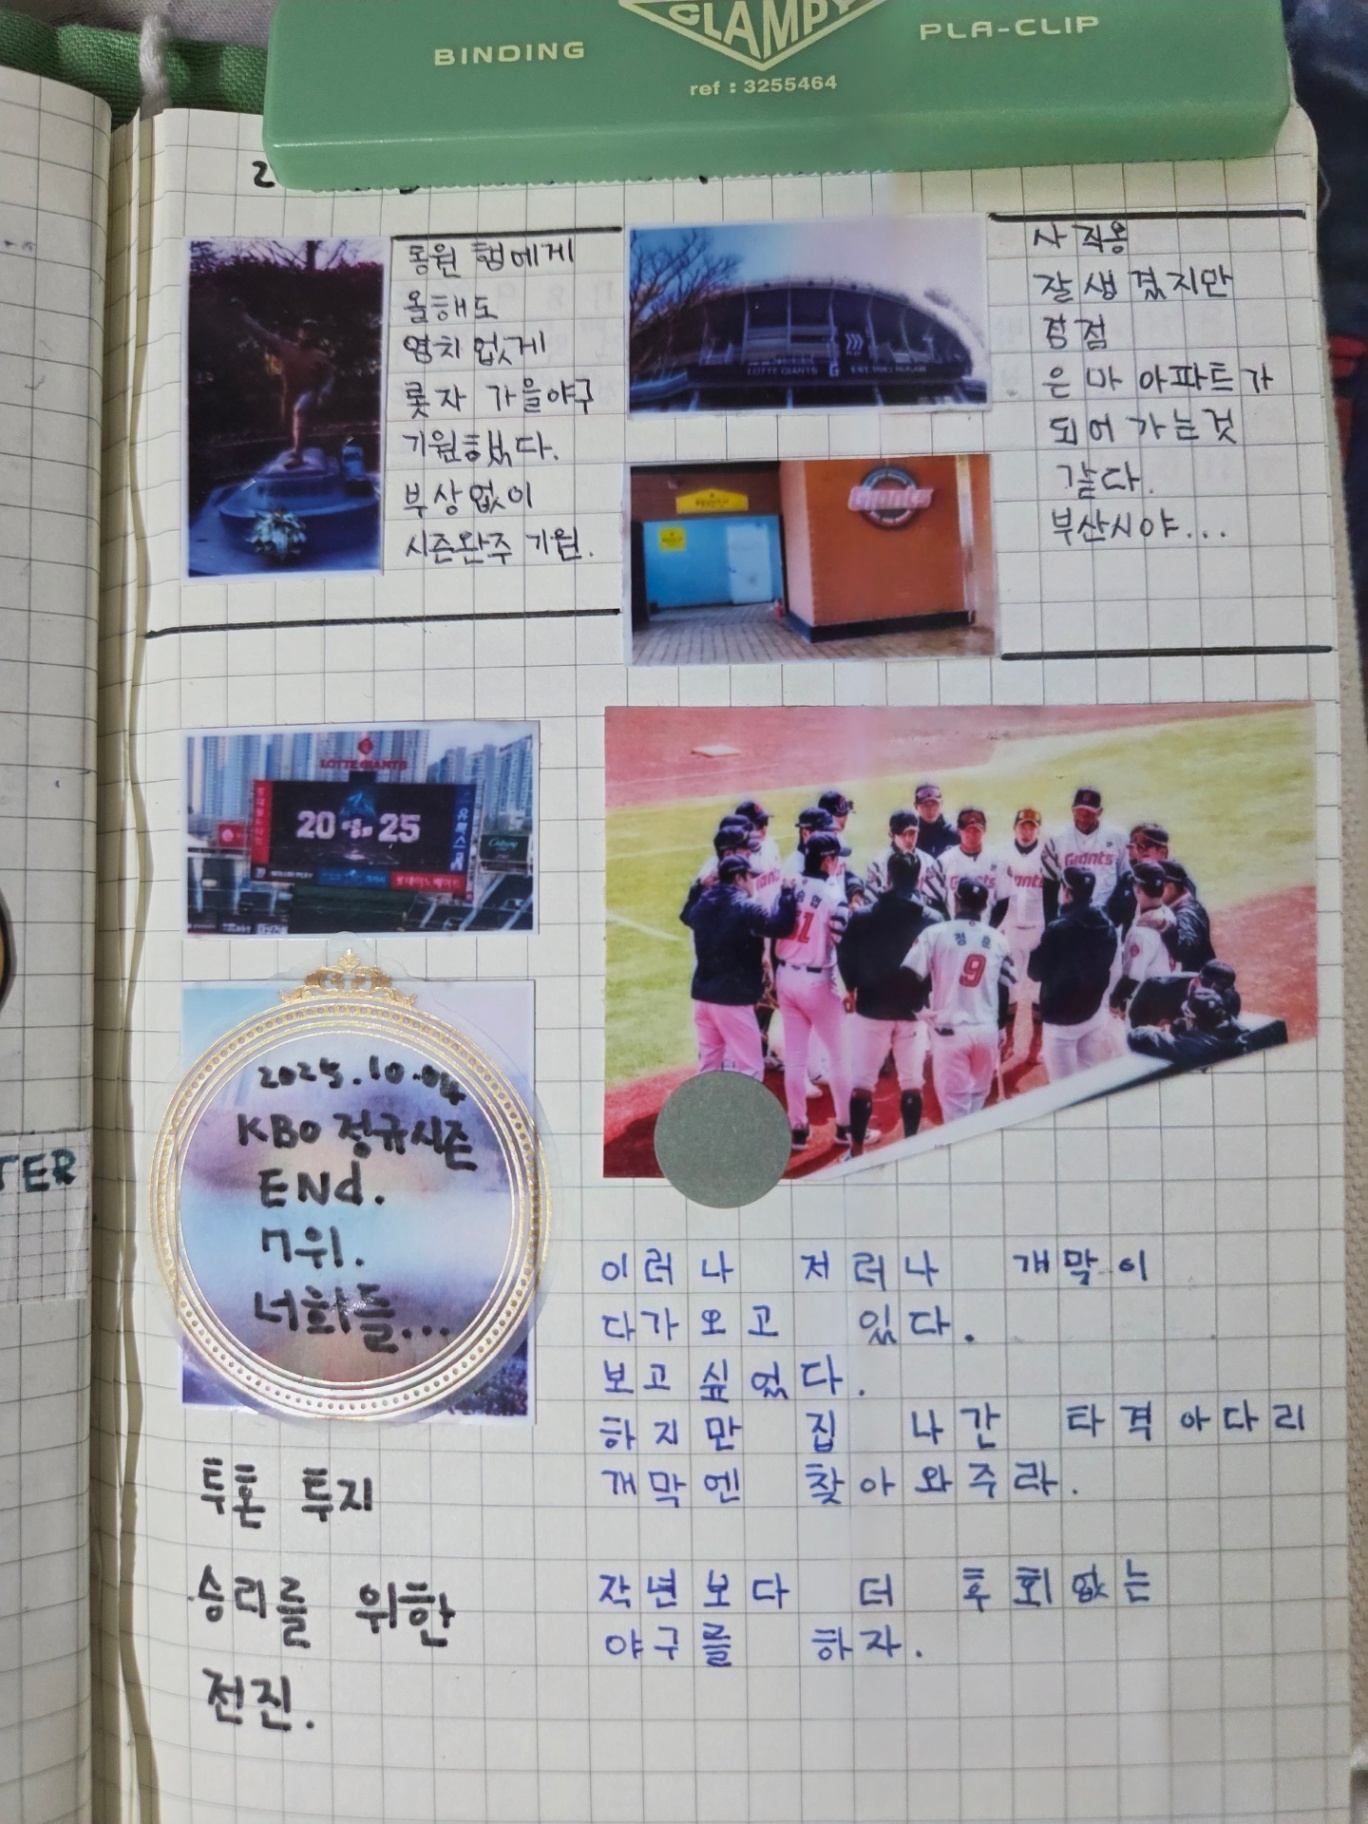 BINDING
CLAMPY
PLA-CLIP
ref : 3255464
2
동원 햄에게
올해도
염치 없게
롯자 가을야구
기원했다.
부상없이
시즌완주 기원.
LOTTE GIANTS
Giants
사직옹
잘생겼지만
점점
은마아파트가
되어가는것
같다.
부산시야...
LOTTE GIANTS
20 25
Giants
51
정훈
9
2025.10.04
KBO 정규시즌
ENd.
7위.
너희들...
TER
이러나 저러나 개막이
다가오고 있다.
보고싶었다.
하지만 집 나간 타격아다리
개막엔 찾아와주라.
작년보다 더 후회없는
야구를 하자.
투혼 투지
승리를 위한
전진.